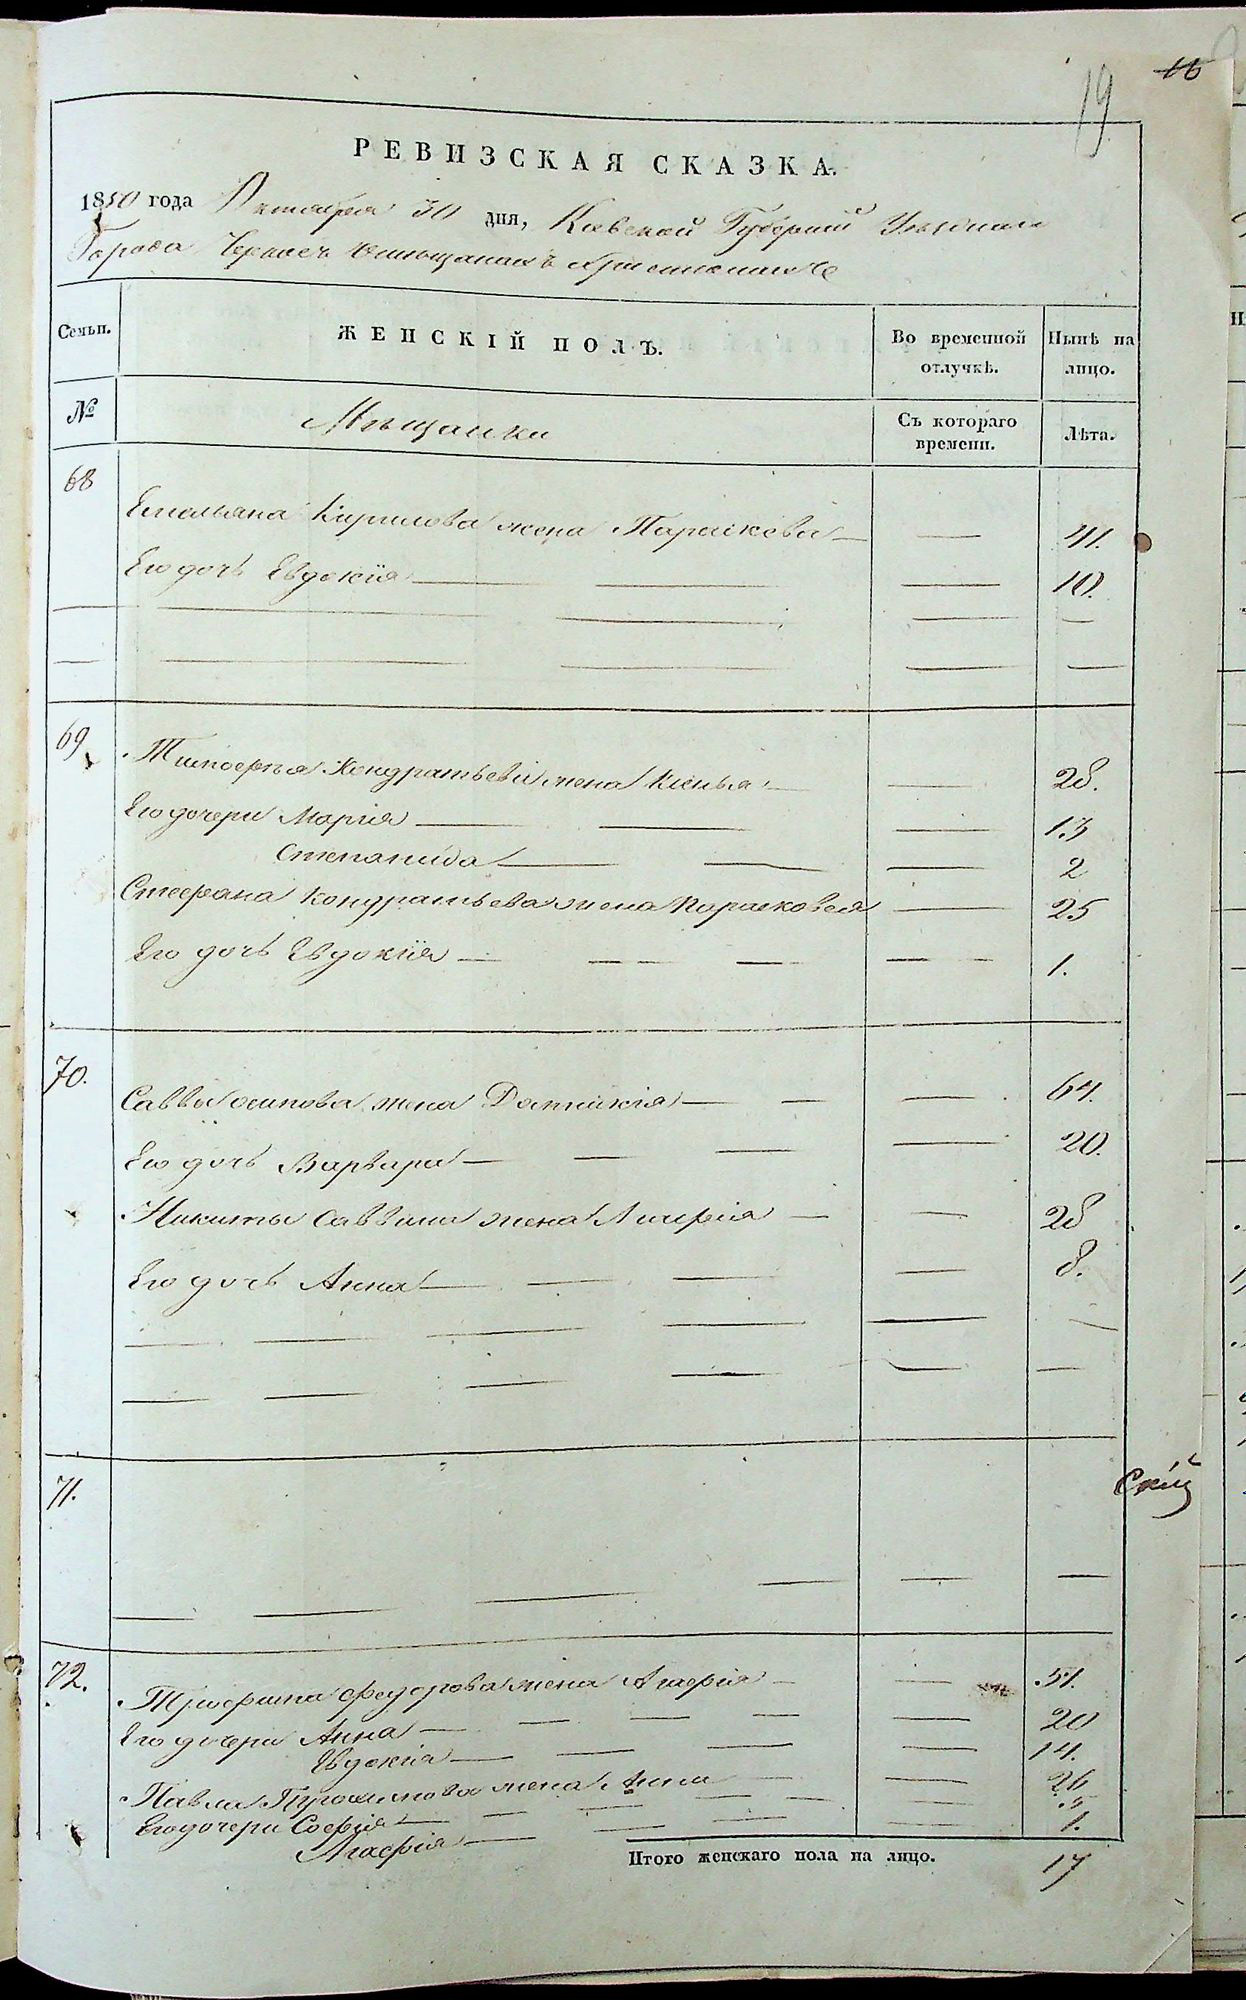 19 16
РЕВИЗСКАЯ СКАЗКА.
1850 года Октября 30 дня, Кіевской Губерніи Уезднаго
Города Черкасъ о мещанахъ христианахъ
Семьи. ЖЕНСКІЙ ПОЛЪ. Во временной отлучкѣ. Нынѣ на лицо.
№ Мѣщанки Съ котораго времени. Лѣта.
68
Емельяна Кирилова жена Параскева 41.
Его дочь Евдокія 10.
69
Тимофея Кондратьева жена Ксенья 28.
Его дочери Марія 13
Степанида 2
Стефана Кондратьева жена Парасковея 25
Его дочь Евдокія 1.
70.
Саввы Осипова жена Домникія 64.
Его дочь Варвара 20.
Никиты Саввина жена Гликерія 28
Его дочь Анна 8.
71.
скій
72.
Трофима Федорова жена Агафія 51.
Его дочери Анна 20
Евдокія 14.
Павла Трофимова жена Анна 26
Его дочери Софія 5
Агафія 1.
Итого женскаго пола на лицо. 17